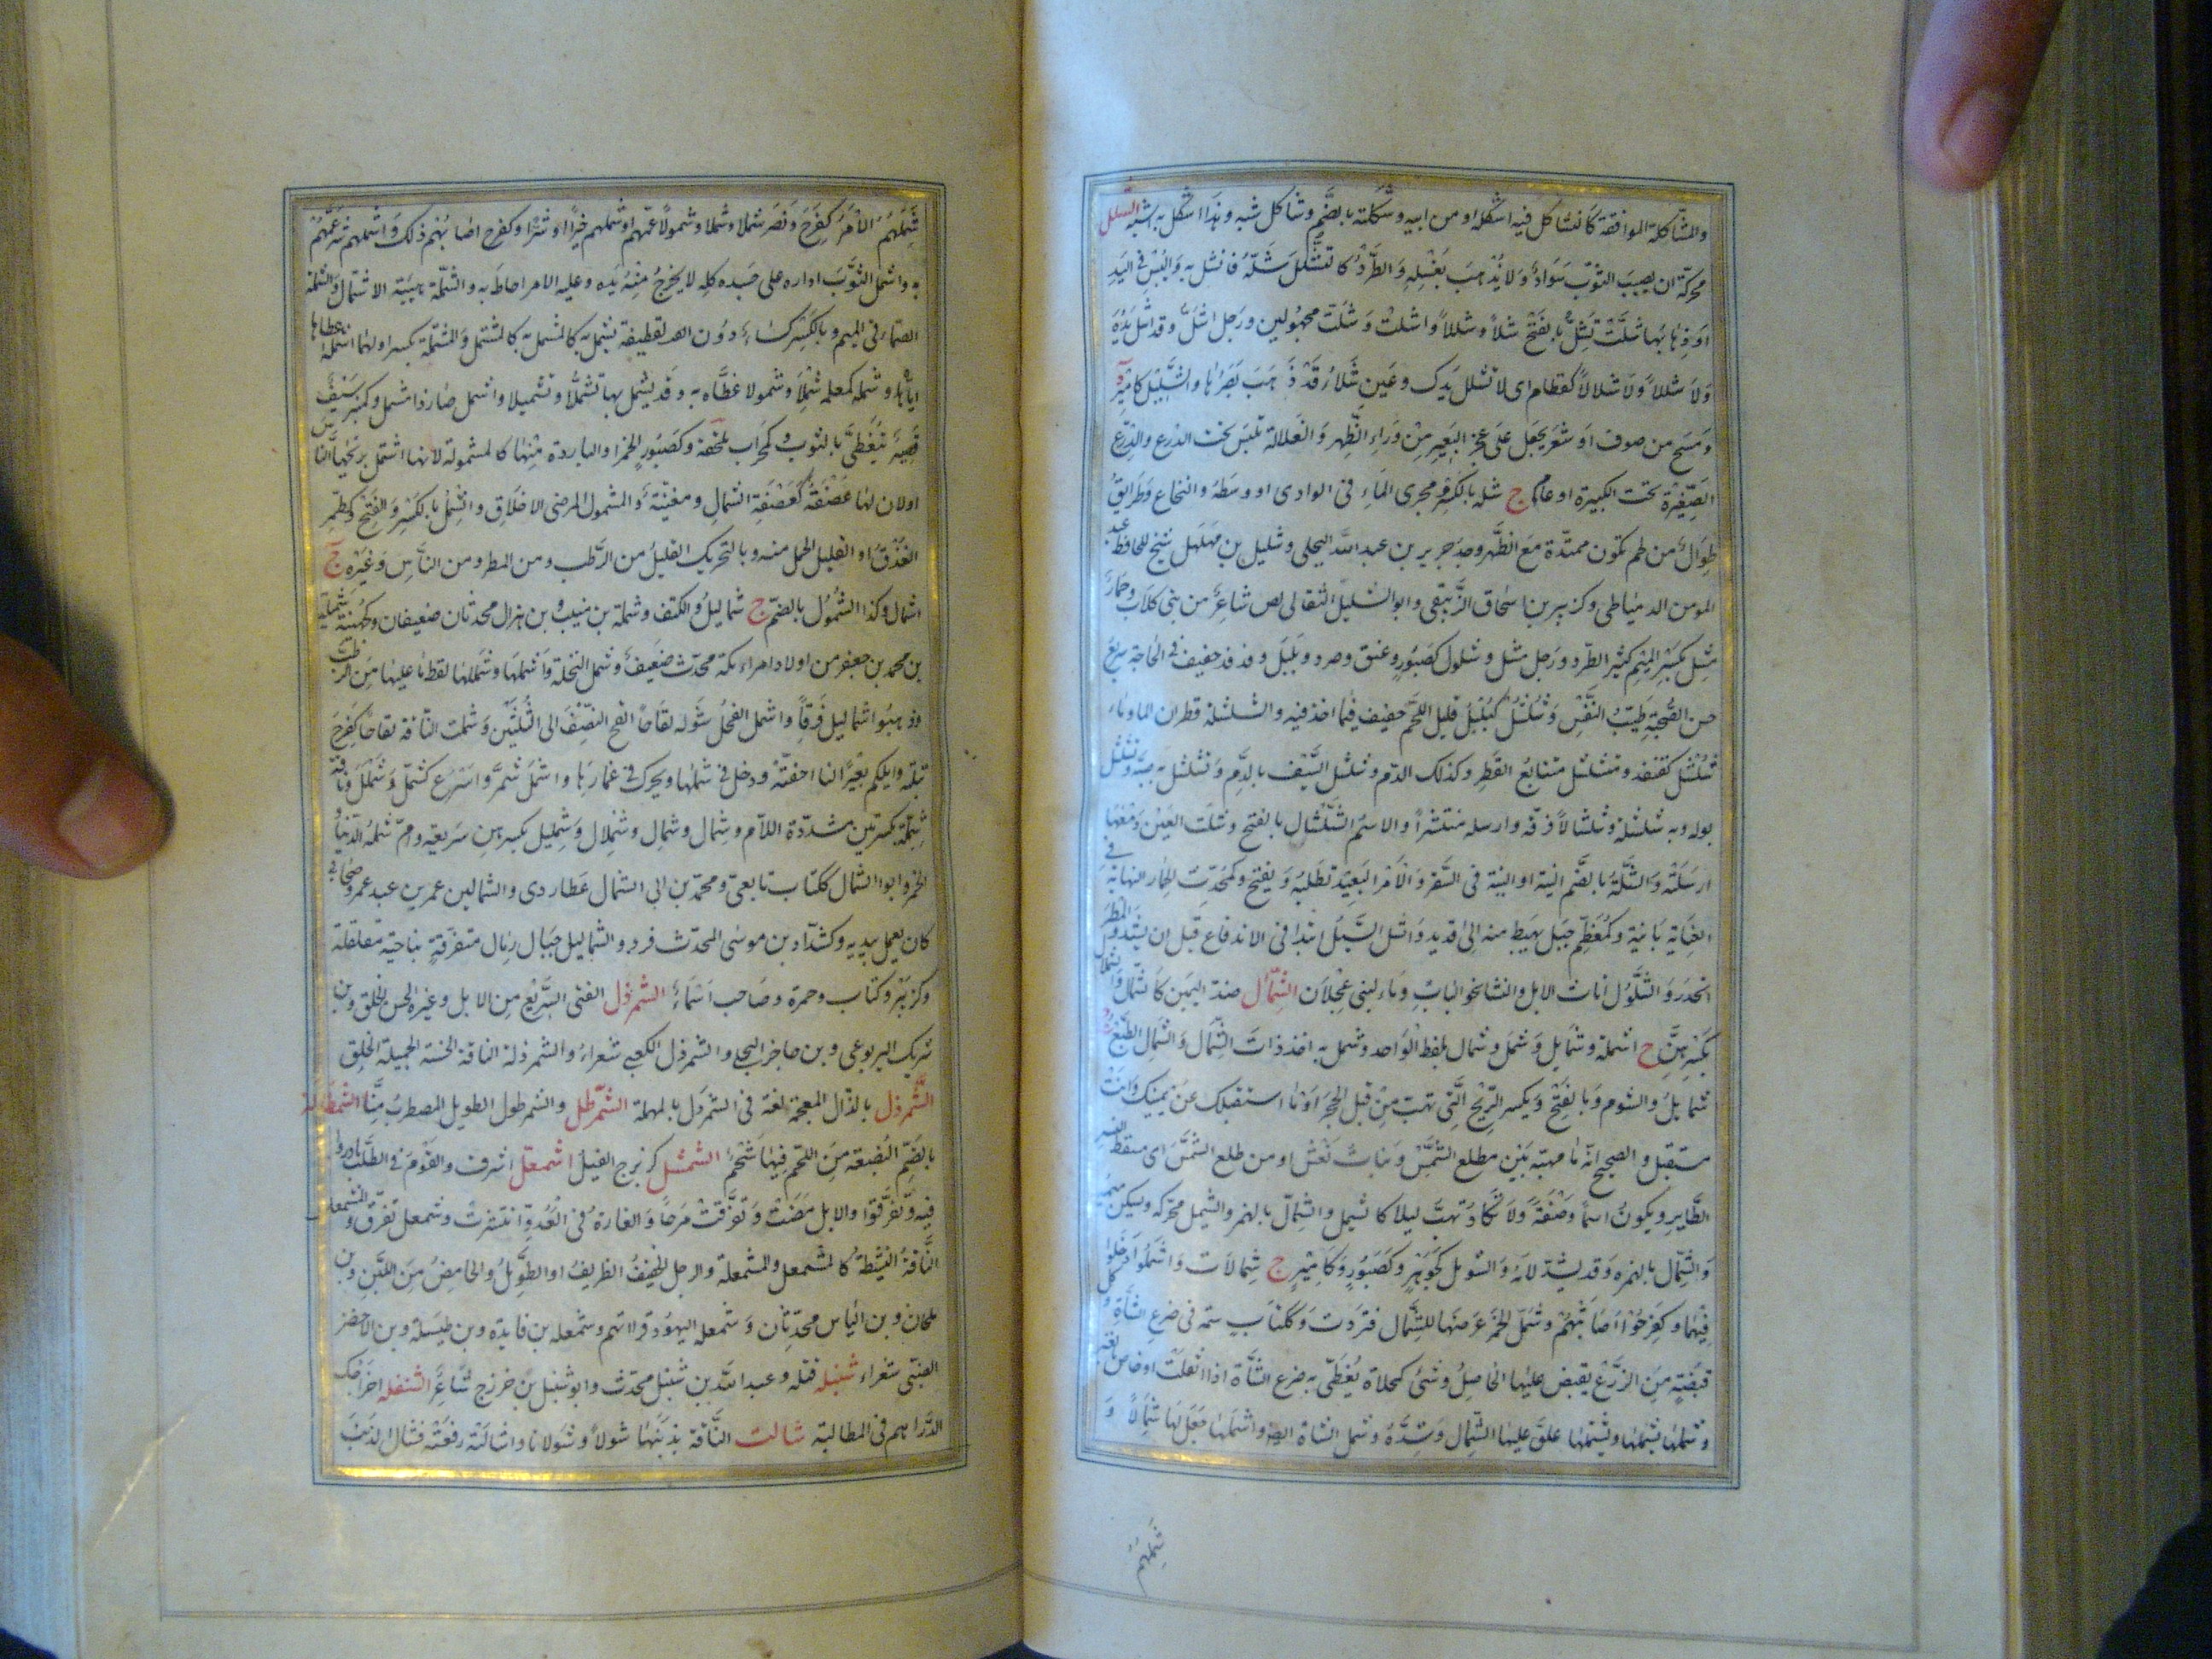 والمشاكلة الموافقة كالتشاكل فيه اشكله او من ابيه وشكلته بالضم وشاكل شبه وهذا اشكل به اشبه الشلل
محركة ان يصيب الثوب سواد ولا يذهب بغسله والطرد كالشل شله فانشل به واليبس في اليد
او ذهابها شلت تشل بالفتح شلا وشللا واشلت وشلت مجهولين ورجل اشل وقد اشل يده
ولا شللا ولا شلال كقطام اى لا تشلل يدك وعين شلاء قد ذهب بصرها والشليل كامير
ومسح من صوف او شعر يجعل على عجز البعير من وراء الظهر والغلالة تلبس تحت الدرع والدرع
الصغيرة تحت الكبيرة او عام ج شلة بالكسر ومجرى الماء فى الوادى او وسطه والنخاع وطرايق
طوال من لحم تكون ممتدة مع الظهر وجد جرير بن عبد الله البجلى وشليل بن مهلهل شيخ للحافظ عبد
المومن الدمياطى وكزبير بن اسحاق الزنبقى وابو الشليل النفاثى لص شاعر من بنى كلاب وحمار
مشل بكسر الميم كثير الطرد ورجل مشل وشلول كصبور وعنق وصرد وبلبل وفدفد خفيف فى الحاجة سريع
حسن الصحبة طيب النفس وشلشل كبلبل قليل اللحم خفيف فيما اخذ فيه والشلشلة قطران الماء وماء
شلشل كقنفذ ومتشلشل متتابع القطر وكذلك الدم وشلشل السيف بالدم وتشلشل به صبه وشلشل
بوله وبه شلشلة وشلشالا فرقه وارسله منتشرا والاسم الشلشال بالفتح وشلت العين دمعها
ارسلته والشلة بالضم النية او النية فى السفر والامر البعيد تطلبه ويفتح وكمحدث الحمار النهاية فى
العناية باتنه وكمعظم جبل يهبط منه الى قديد وانشل السيل ابتدا فى الاندفاع قبل ان يشتد والمطر
انحدر والشلول اناث الابل والنشا نحو الناب وماء لبنى عجلان الشمال ضد اليمين كالشمال والشملال
بكسرهن ج اشملة وشمايل وشمل وشمال بلفظ الواحد وشمل به اخذ ذات الشمال والشمال الطبع ج
شمايل والشوم وبالفتح ويكسر الريح التى تهب من قبل الحجر او ما استقبلك عن يمينك وانت
مستقبل والصحيح انه ما مهبه بين مطلع الشمس وبنات نعش او من طلع الشمس اى مسقط النسر
الطاير ويكون اسما وصفة ولا تكاد تهب ليلا كالشيمل والشمال بالهمز والشمل محركة ويسكن ميمه
والشمال بالهمزة وقد يشد لامه والشومل كجوهر وكصبور وكامير ج شمالات واشملوا دخلوا
فيها وكفرحوا اصابتهم وشمل الخمر عرضها للشمال فبردت وككتاب سمة فى ضرع الشاة وكل
قبضة من الزرع يقبض عليها الحاصل وشىء كمخلاة يغطى به ضرع الشاة اذا اثقلت او خاص بالعنز
وشملها يشملها ويشملها علق عليها الشمال وشده وشمل الشاة ايضا واشملها جعل لها شمالا و
شملهم
شملهم الامر كفرح ونصر شملا وشملا وشمولا عمهم او شملهم خيرا او شرا وكفرح اصابهم ذلك واشملهم شرا عمهم
به واشتمل الثوب اداره على جسده كله لا يخرج منه يده وعليه الامر احاط به والشملة هيئة الاشتمال والشملة
الصماء فى الميم وبالكسر كساء دون القطيفة يشتمل به كالمشمل به كالمشتمل والمشملة بكسر اولهما اشملة اعطاها
اياه وشمله كعلمه شملا وشمولا غطاه به وقد يشتمل بها تشملا وتشميلا واشمل صار ذا مشمل وكمنبر سيف
قصير يتغطى بالثوب وكمحراب ملحفة وكصبور الخمر او الباردة منها كالمشمولة لانها اشتمل بريحها الناس
او لان لها عصفة كعصفة الشمال ومغنية والمشمول المرضى الاخلاق والشمل بالكسر والفتح وكطمر
العذق او القليل الحمل منه وبالتحريك القليل من الرطب ومن المطر ومن الناس وغيره ج
اشمال وكذا الشمول بالضم ج شماليل والكتف وشملة بن منيب وبن هزال محدثان ضعيفان وكجهينة شميلة
بن محمد بن جعفر من اولاد امراء مكة محدث ضعيف وشمل النخلة واشملها وشمللها لقط ما عليها من الرطب
وذهبوا شماليل فرقا واشمل الفحل شوله لقاحا القح النصف الى الثلثين وشملت الناقة لقاحا كفرح
قبلته وابلكم بعيرا لنا اخفته ودخل فى شملها ويحرك فى غمارها واشمل شمر واسرع كشمل وشملل وناقة
شملة بكسرتين مشددة اللام وشمال وشملال وشمليل بكسرهن سريعة وام شملة الدنيا و
الخمر وابو الشمال ككتاب تابعى ومحمد بن ابى الشمال عطاردى والشمالين عمير بن عبد عمرو صحابى
كان يعمل بيديه وكشداد بن موسى المحدث فرد والشماليل جبال رمال متفرقة بناحية معقلة
وكزبير وكتاب وحمزة وصاحب اسماء الشمردل الفتى السريع من الابل وغيره الحسن الخلق وبن
شريك اليربوعى وبن حاجز البجلى والشمردل الكعبى شعراء والشمردلة الناقة الحسنة الجميلة الخلق
الشمرذل بالذال المعجمة لغة فى الشمردل بالمهملة الشمرطل والشمرطول الطويل المضطرب منا الشمطالة
بالضم البضعة من اللحم فيها شحم الشمشل كزبرج الفيل اشمعل اشرف والقوم فى الطلب بادروا
فيه وتفرقوا والابل مضت وتفرقت مرحا والغارة فى العدو انتشرت وشمعل تفرق والمشمعل
الناقة النشيطة كالمشمعل والمشمعلة والرجل الخفيف الظريف او الطويل والحامض من اللبن وبن
ملحان وبن الياس محدثان وشمعلة اليهود قراءتهم وشمعلة بن فايدة وبن طيسلة وبن الاخضر
الضبى شعراء شنبلة قبله وعبد الله بن شنبل محدث وابو شنبل بن خرزج شاعر الشنفلة اخراجك
الدراهم فى المطالبة شالت الناقة بذنبها شولا وشولانا واشالته رفعته فشال الذنب